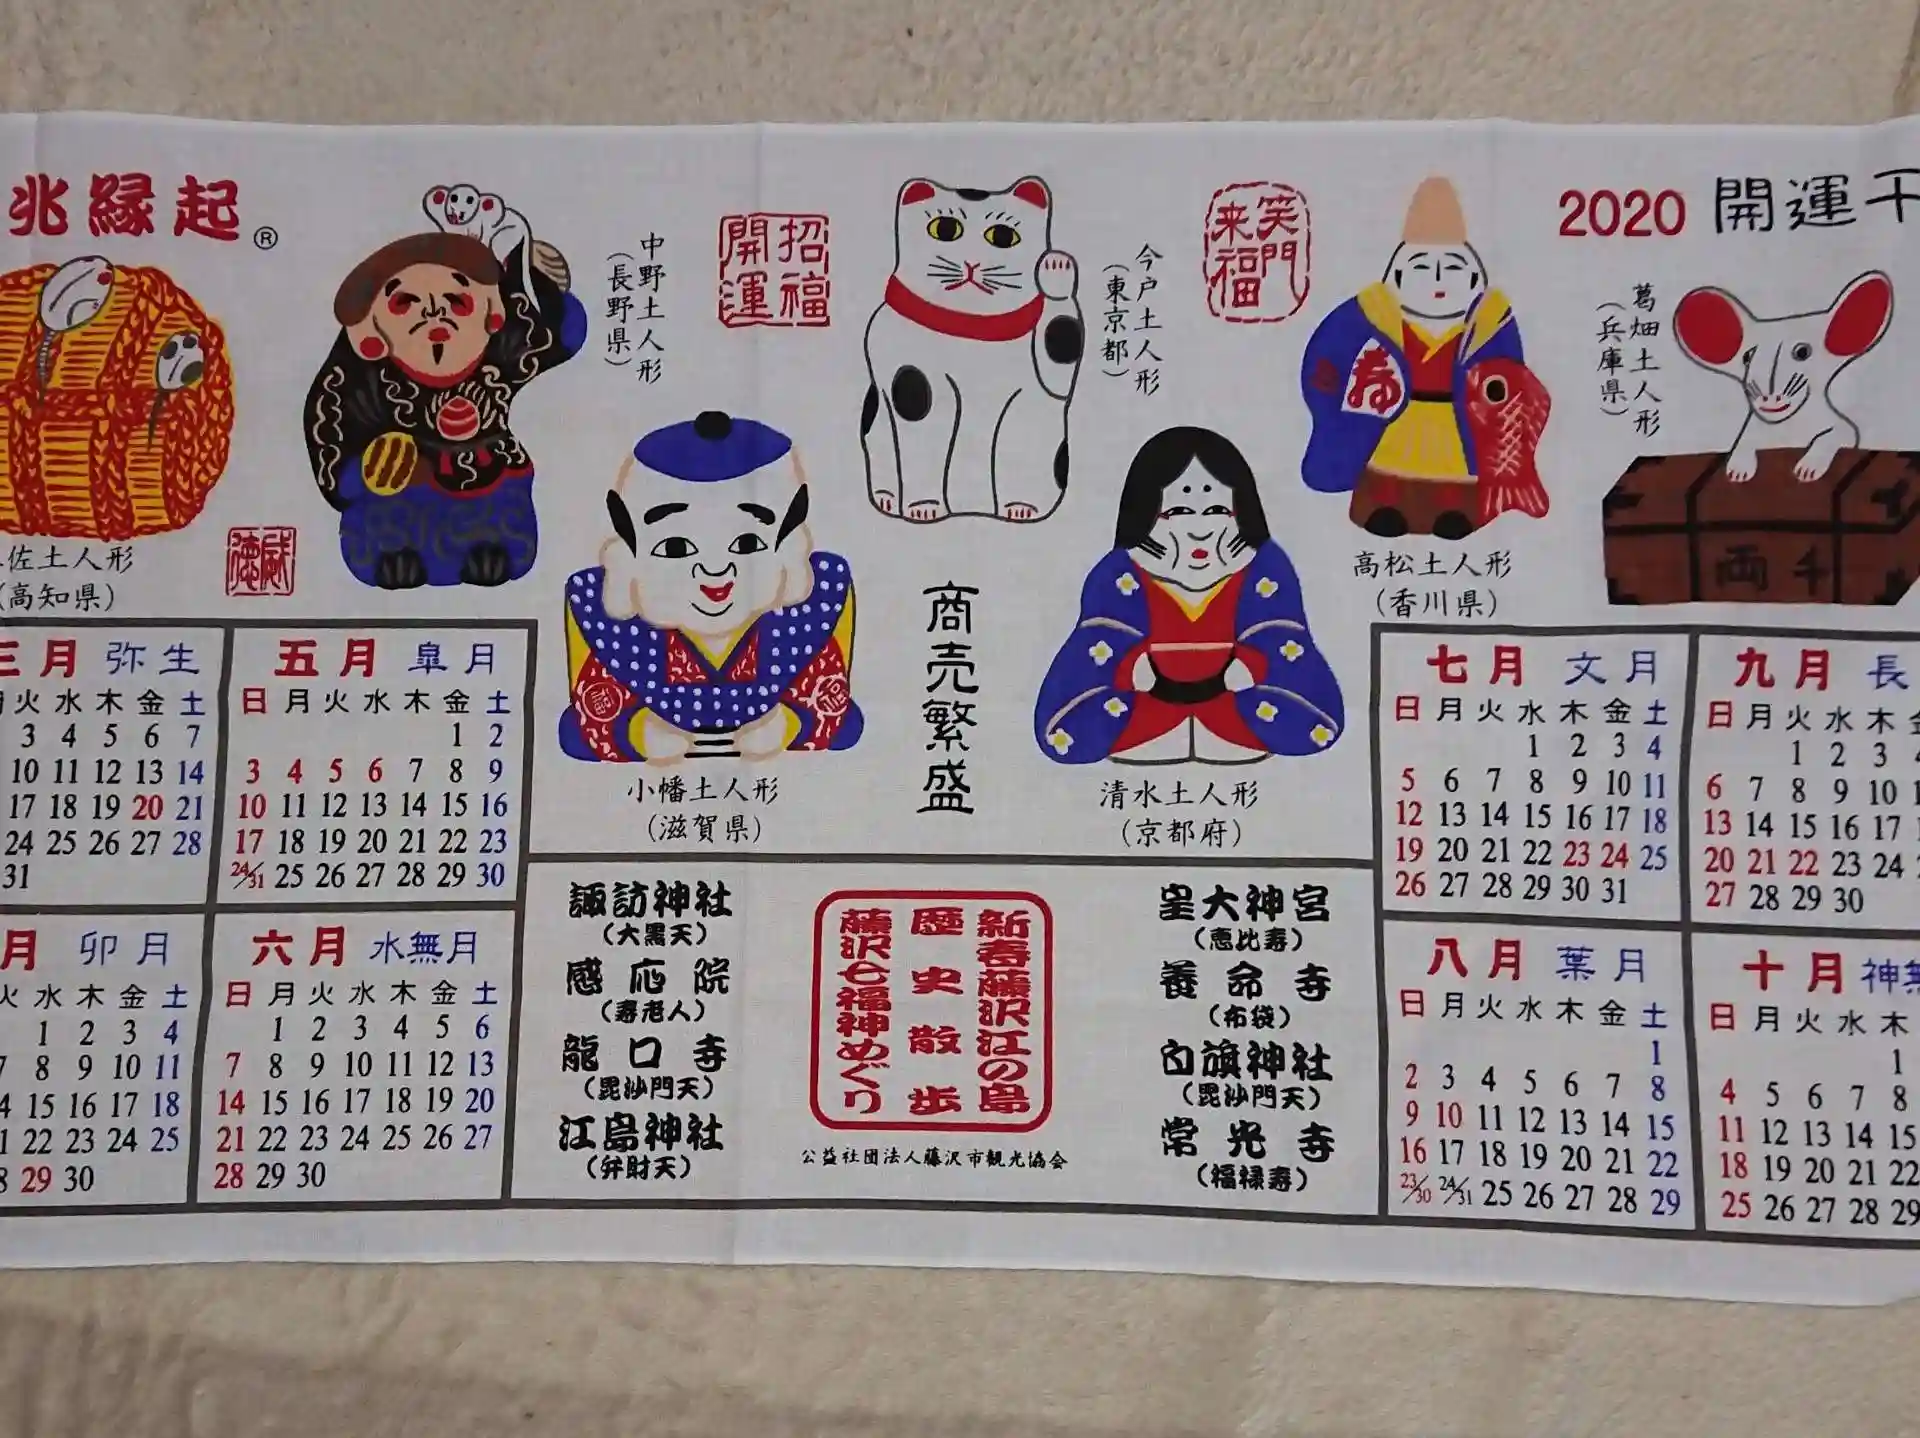 兆縁起®
2020 開運干
佐土人形
(高知県)
威徳
中野土人形
(長野県)
招福
開運
今戸土人形
(東京都)
笑門
来福
寿
高松土人形
(香川県)
葛畑土人形
(兵庫県)
千両
福
小幡土人形
(滋賀県)
商売繁盛
清水土人形
(京都府)
三月 弥生
火 水 木 金 土
3 4 5 6 7
10 11 12 13 14
17 18 19 20 21
24 25 26 27 28
31
五月 皐月
日 月 火 水 木 金 土
1 2
3 4 5 6 7 8 9
10 11 12 13 14 15 16
17 18 19 20 21 22 23
24/31 25 26 27 28 29 30
月 卯月
火 水 木 金 土
1 2 3 4
7 8 9 10 11
14 15 16 17 18
21 22 23 24 25
28 29 30
六月 水無月
日 月 火 水 木 金 土
1 2 3 4 5 6
7 8 9 10 11 12 13
14 15 16 17 18 19 20
21 22 23 24 25 26 27
28 29 30
諏訪神社
(大黒天)
感応院
(寿老人)
龍口寺
(毘沙門天)
江島神社
(弁財天)
新春藤沢江の島
歴史散歩
藤沢七福神めぐり
公益社団法人藤沢市観光協会
皇大神宮
(恵比寿)
養命寺
(布袋)
白旗神社
(毘沙門天)
常光寺
(福禄寿)
七月 文月
日 月 火 水 木 金 土
1 2 3 4
5 6 7 8 9 10 11
12 13 14 15 16 17 18
19 20 21 22 23 24 25
26 27 28 29 30 31
九月 長
日 月 火 水 木 金
1 2 3 4
6 7 8 9 10
13 14 15 16 17
20 21 22 23 24
27 28 29 30
八月 葉月
日 月 火 水 木 金 土
1
2 3 4 5 6 7 8
9 10 11 12 13 14 15
16 17 18 19 20 21 22
23/30 24/31 25 26 27 28 29
十月 神無
日 月 火 水 木
1
4 5 6 7 8
11 12 13 14 15
18 19 20 21 22
25 26 27 28 29